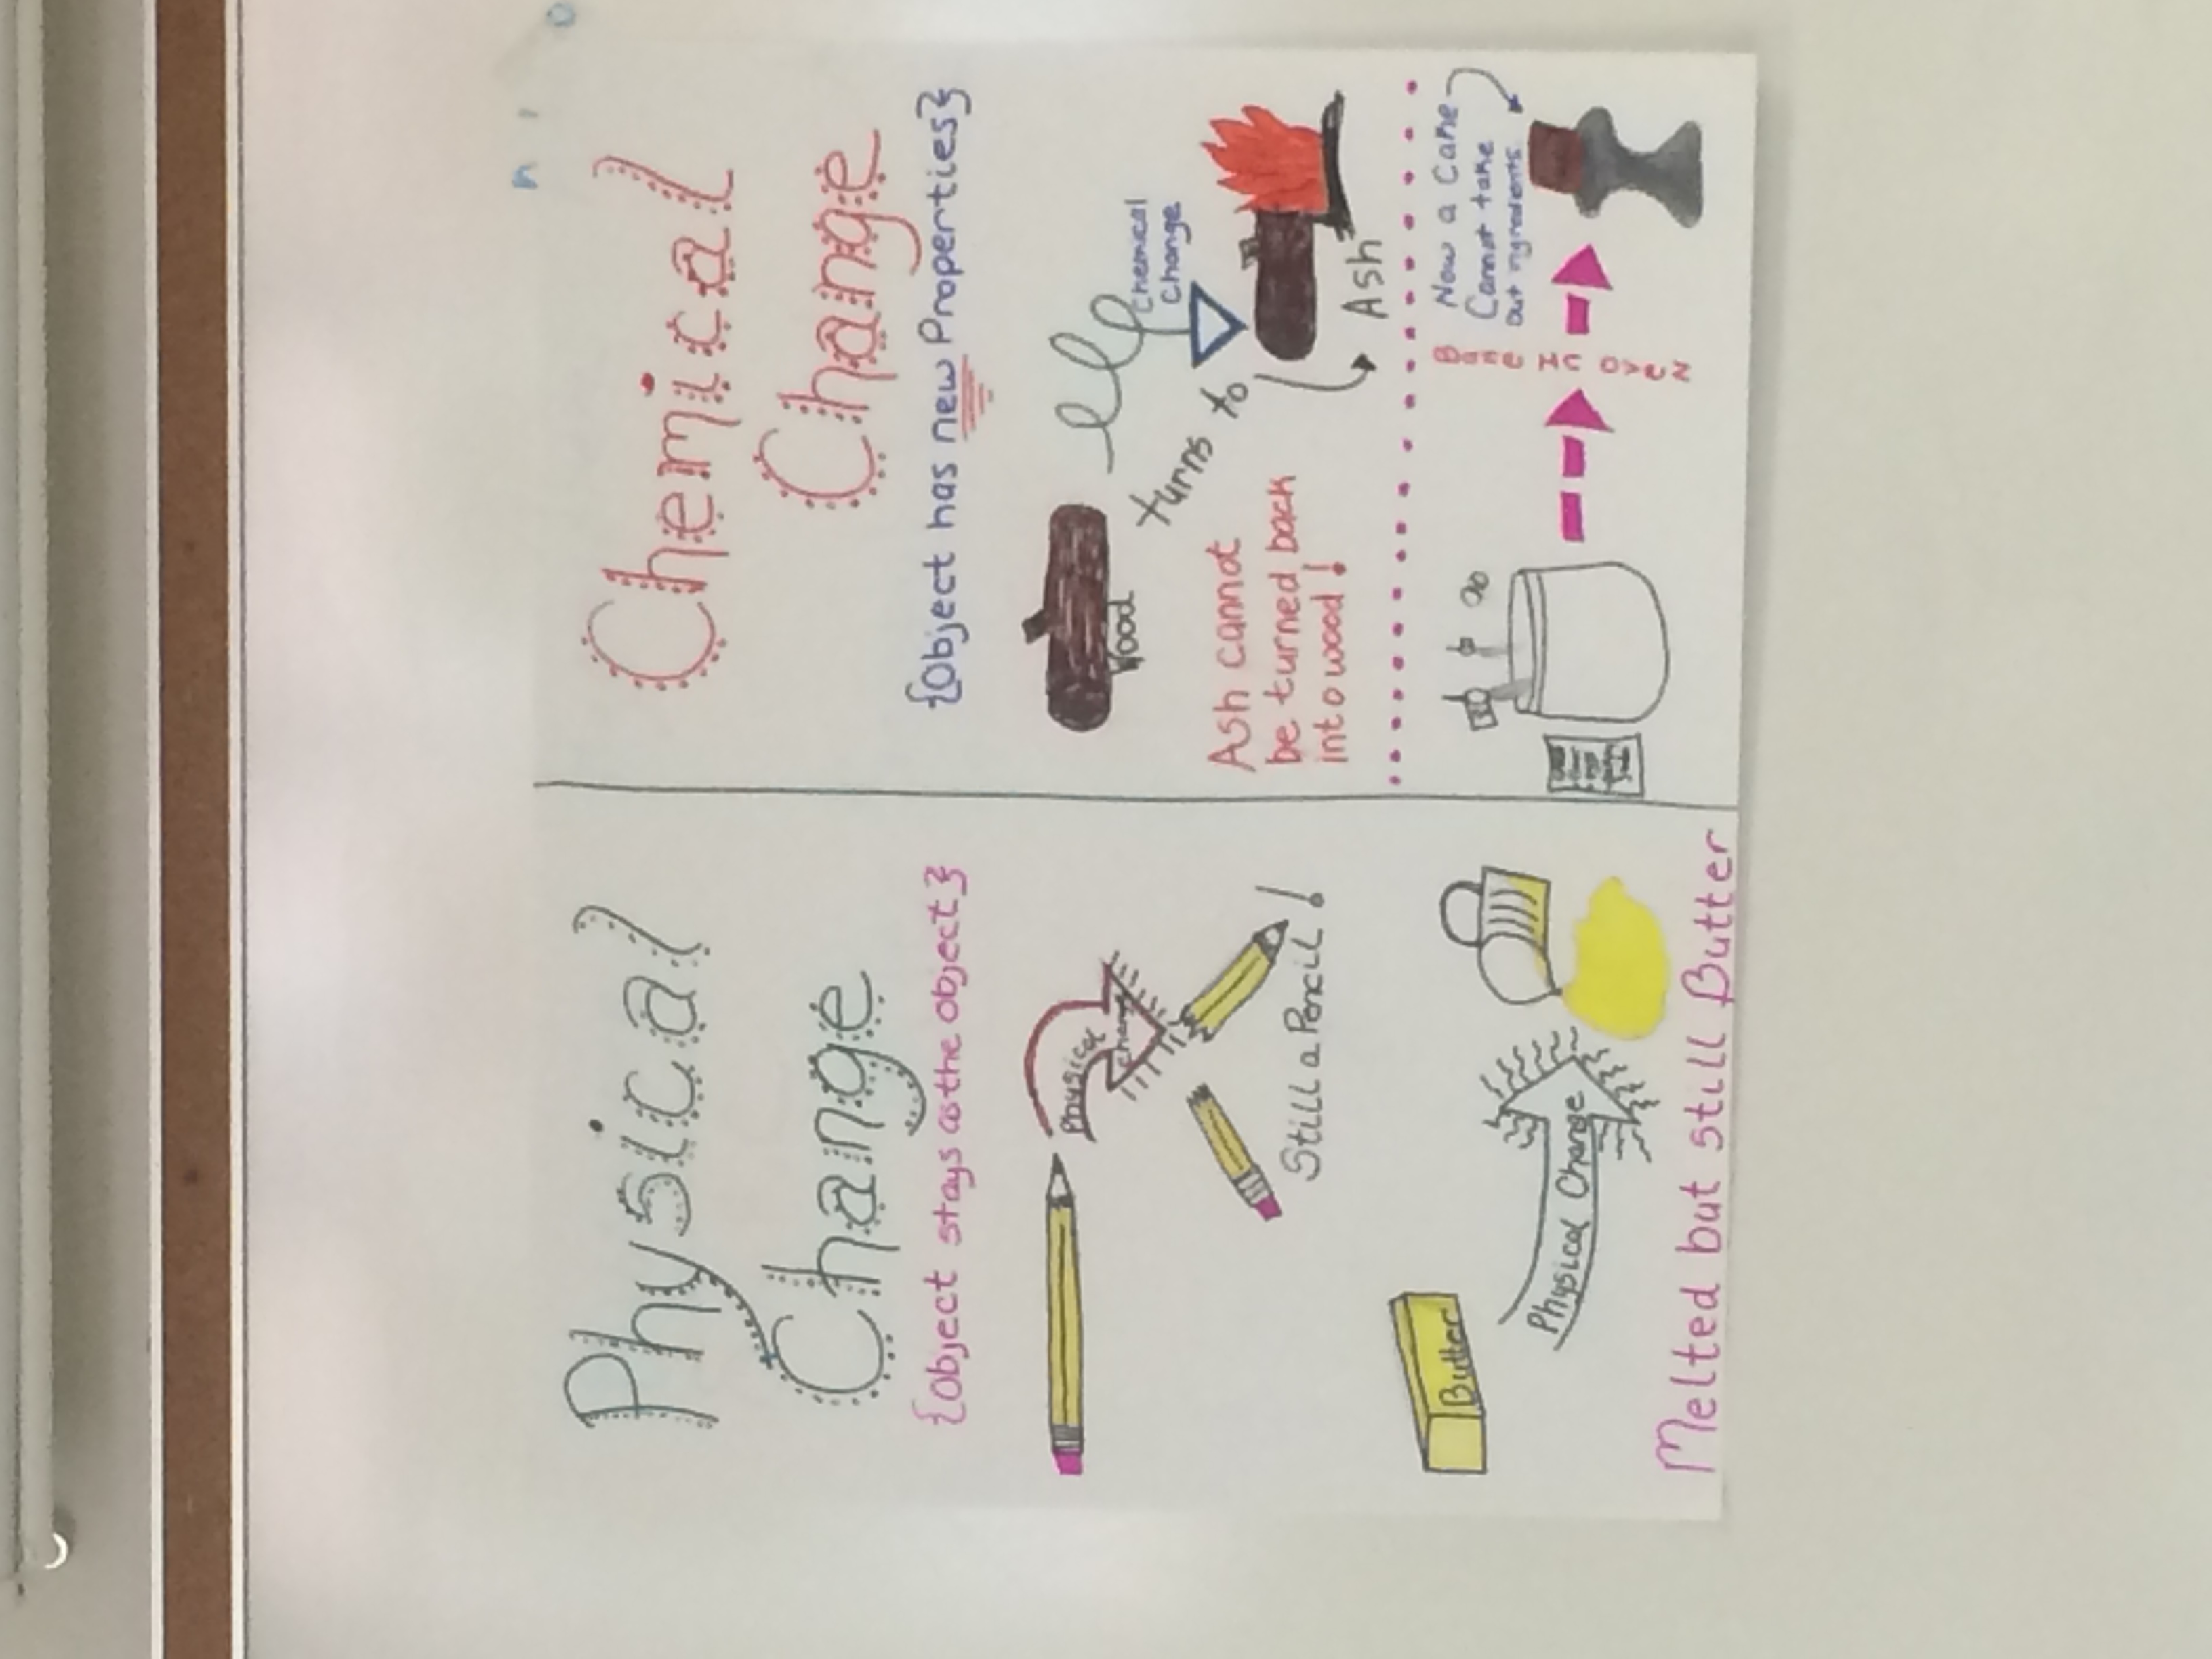 Physical
Change
{Object stays as the object}
Physical
Change
Still a Pencil!
Butter
Physical Change
Melted but still Butter
Chemical
Change
{Object has new Properties}
Wood
turns to
Chemical
Change
Ash
Ash cannot
be turned back
into wood!
Bake In OveN
Now a Cake
Cannot take
out ingredients